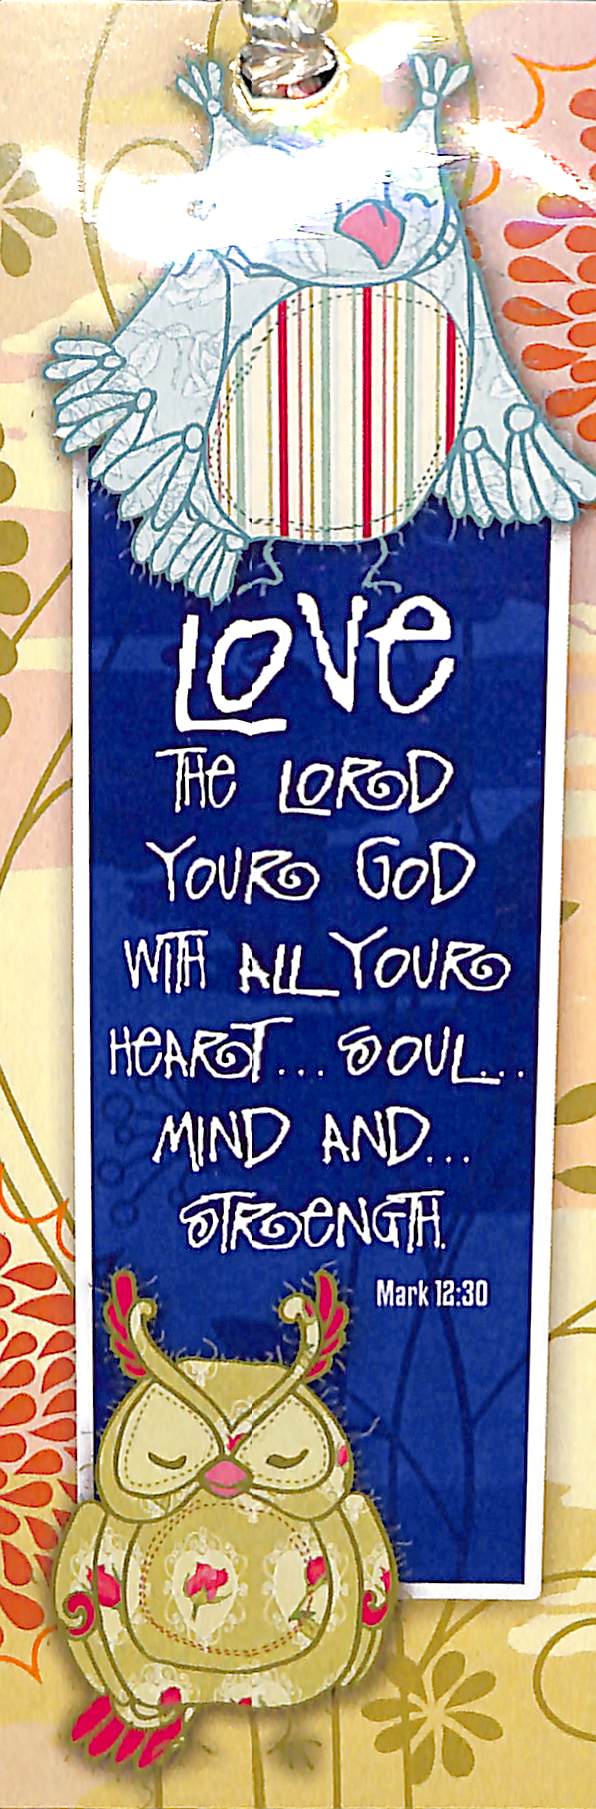 LOVe
THe LORD
YOUR GOD
WITH ALL YOUR
HeART... SOUL...
MIND AND...
STReNGTH.
Mark 12:30